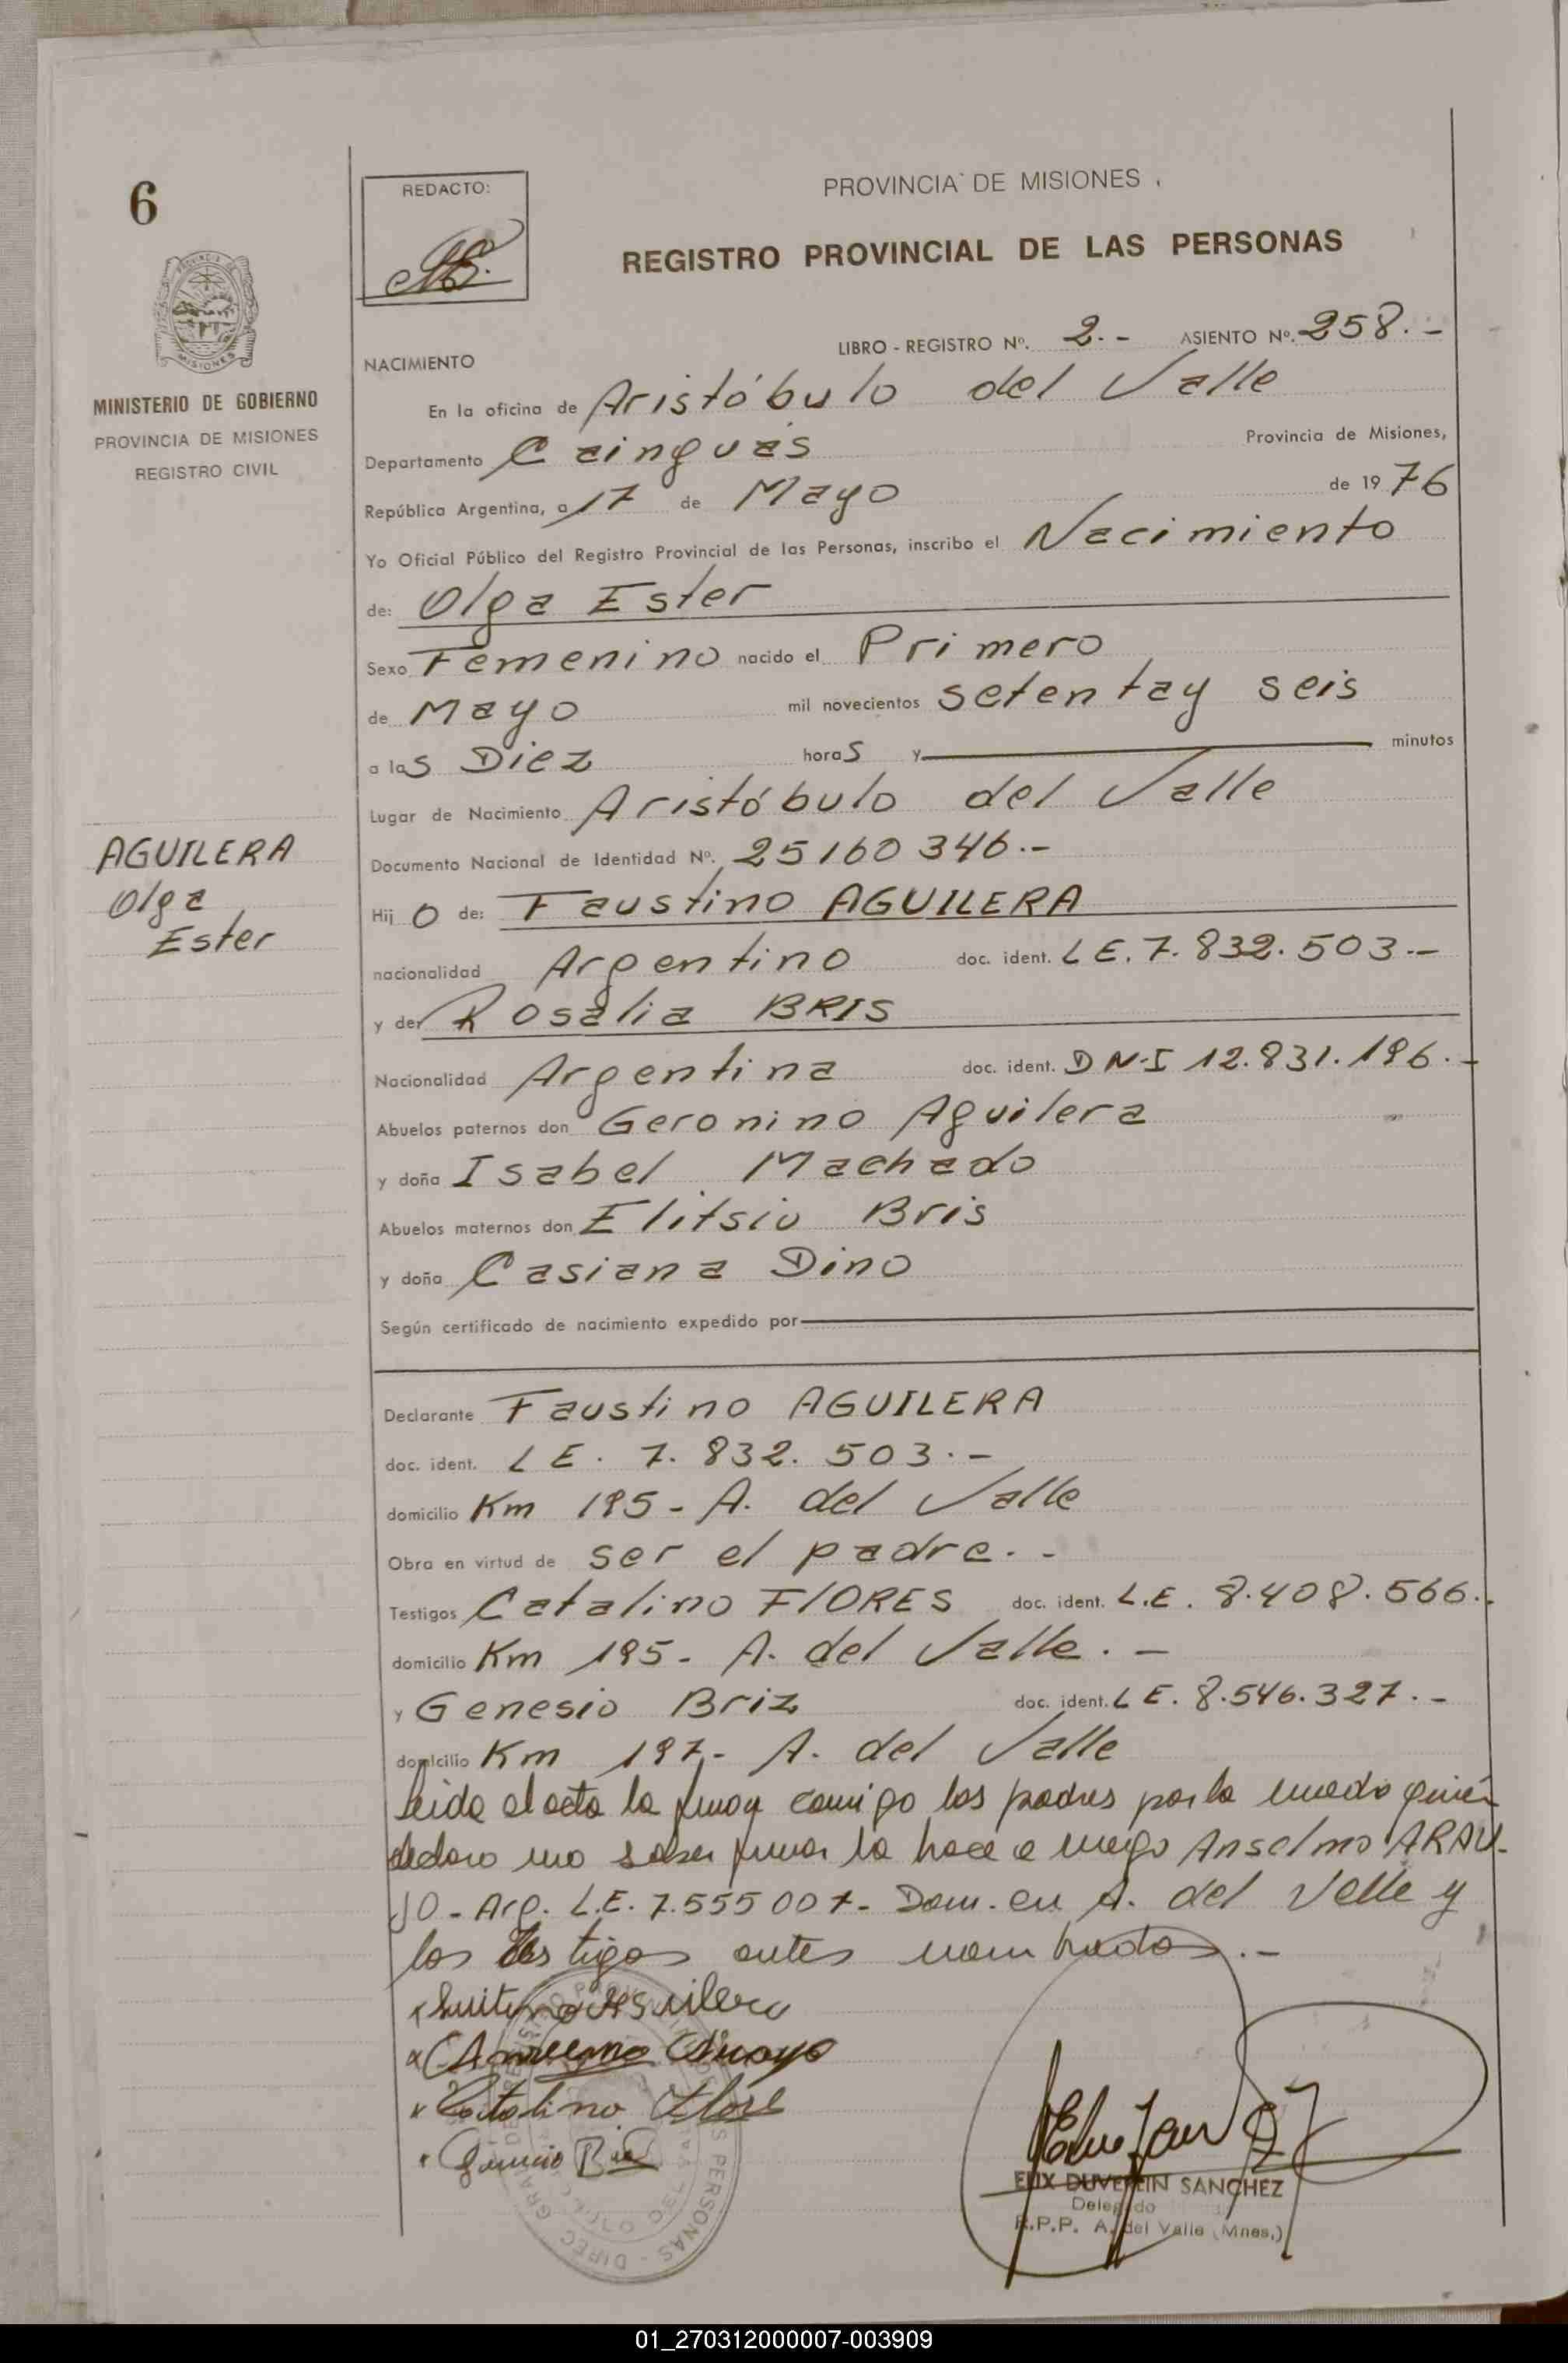 6
REDACTO:
PROVINCIA DE MISIONES
REGISTRO PROVINCIAL DE LAS PERSONAS
MINISTERIO DE GOBIERNO
PROVINCIA DE MISIONES
REGISTRO CIVIL
LIBRO - REGISTRO Nº. 2.- ASIENTO Nº. 258.-
NACIMIENTO
En la oficina de Aristóbulo del Valle
Departamento Cainguás Provincia de Misiones,
República Argentina, a 17 de Mayo de 1976
Yo Oficial Público del Registro Provincial de las Personas, inscribo el Nacimiento
de: Olga Ester
Sexo Femenino nacido el Primero
de Mayo mil novecientos setentay seis
a las Diez horas y minutos
Lugar de Nacimiento Aristóbulo del Valle
Documento Nacional de Identidad Nº. 25160346.-
AGUILERA
Olga
Ester
Hijo de: Faustino AGUILERA
nacionalidad Argentino doc. ident. LE. 7.832.503.-
y de: Rosalia BRIS
Nacionalidad Argentina doc. ident. DN-I 12.831.196.-
Abuelos paternos don Geronino Aguilera
y doña Isabel Machado
Abuelos maternos don Elitsio Bris
y doña Casiana Dino
Según certificado de nacimiento expedido por
Declarante Faustino AGUILERA
doc. ident. LE. 7.832.503.-
domicilio Km 195- A. del Valle
Obra en virtud de ser el padre.-
Testigos Catalino FLORES doc. ident. L.E. 8.408.566.
domicilio Km 195- A. del Valle.-
y Genesio Briz doc. ident. LE. 8.546.327.-
domicilio Km 197- A. del Valle
leida el acta la firman conmigo los padres por la madre quién
declaro no saber firmar lo hace a ruego Anselmo ARAU-
JO- Arg. L.E. 7.555007- Dom. en A. del Valle y
los testigos antes nombrados.-
Aguilera
Catalino Flore
ELIX DUVERLIN SANCHEZ
Delegado
R.P.P. A. del Valle (Mnes.)
01_270312000007-003909